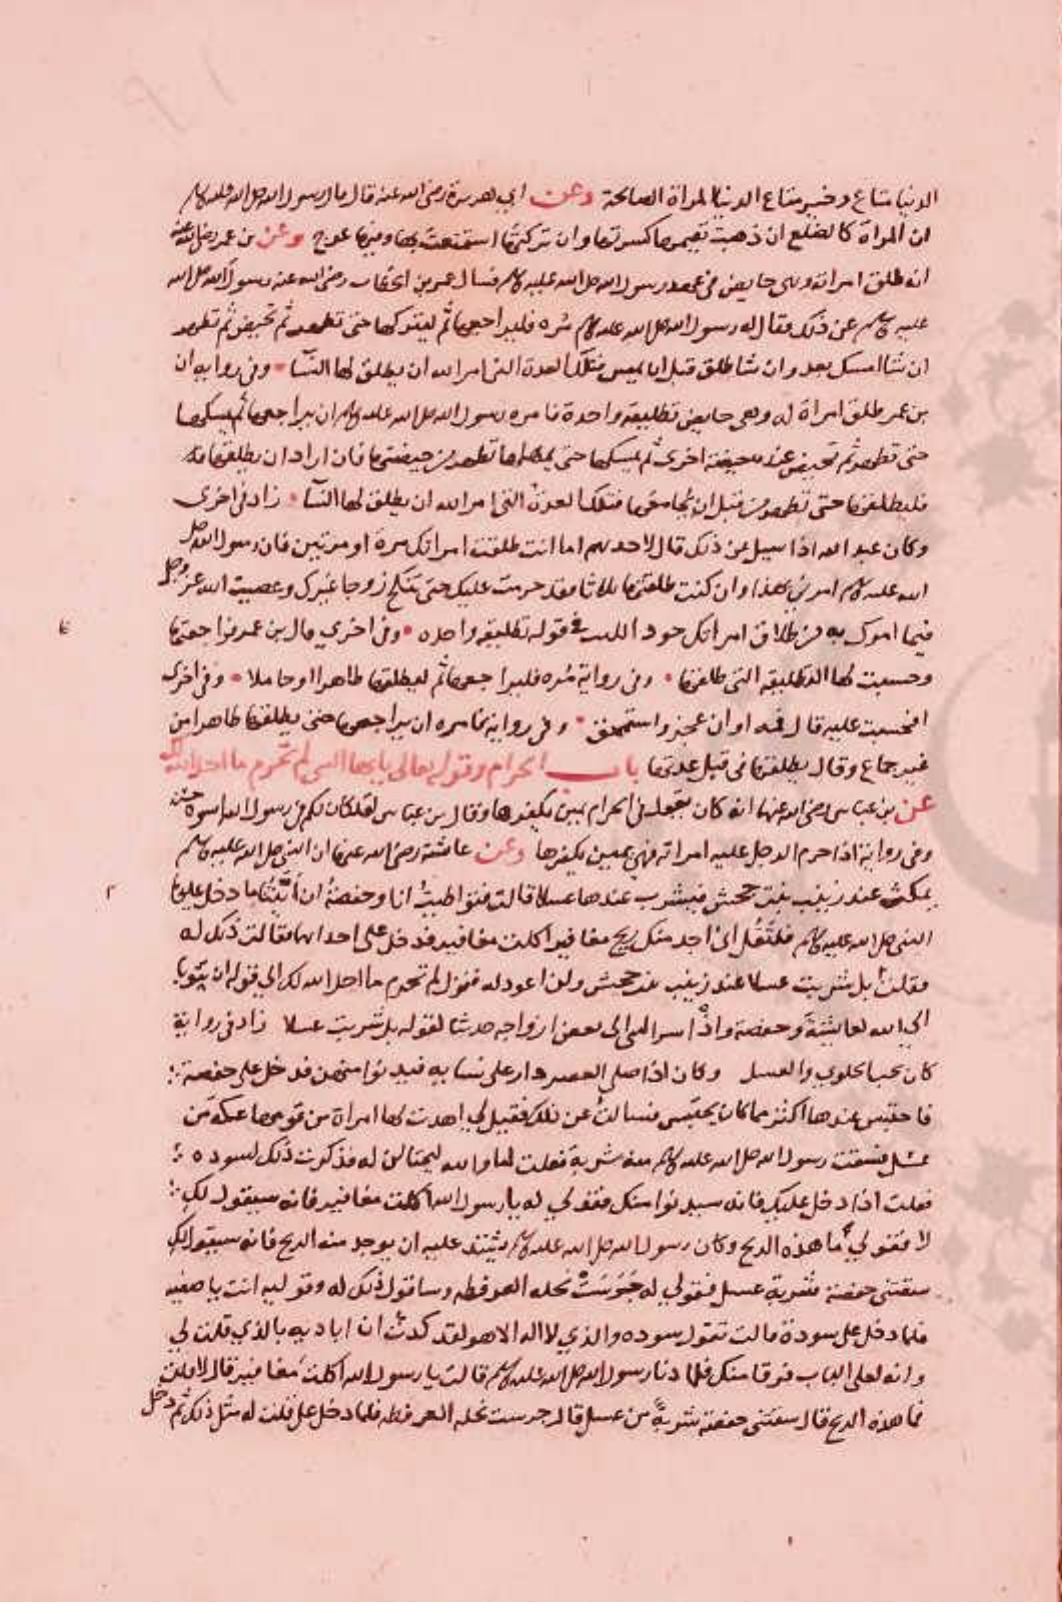 الدنيا متاع وخير متاع الدنيا المراة الصالحة وعن ابي هريرة رضى الله عنه قال قال رسول الله صلى الله عليه وسلم
ان المراة كالضلع ان ذهبت تقيمها كسرتها وان تركتها استمتعت بها وفيها عوج وعن بن عمر رضى الله عنه
انه طلق امراته وهى حايض فى عهد رسول الله صلى الله عليه وسلم فسال عمر بن الخطاب رضى الله عنه رسول الله صلى الله
عليه وسلم عن ذلك فقال له رسول الله صلى الله عليه وسلم مُره فليراجعها ثم ليتركها حتى تطهر ثم تحيض ثم تطهر
ان شا امسك بعد وان شا طلق قبل ان يمس فتلك العدة التى امر الله ان يطلق لها النسآ وفى رواية ان
بن عمر طلق امراة له وهى حايض تطليقة واحدة فامره رسول الله صلى الله عليه وسلم ان يراجعها ثم يمسكها
حتى تطهر ثم تحيض عنده حيضة اخرى ثم يمسكها حتى يمهلها تطهر من حيضتها فان اراد ان يطلقها
فليطلقها حتى تطهر من قبل ان يجامعها فتلك العدة التى امر الله ان يطلق لها النسآ زاد فى اخرى
وكان عبد الله اذا سيل عن ذلك قال لاحدهم اما انت طلقت امراتك مرة او مرتين فان رسول الله صلى
الله عليه وسلم امرنى بهذا وان كنت طلقتها ثلاثا فقد حرمت عليك حتى تنكح زوجا غيرك وعصيت الله عز وجل
فيما امرك به من طلاق امراتك جود الليث فى قوله تطليقة واحده وفى اخرى قال بن عمر فراجعتها
وحسبت لها التطليقه التى طلقتها وفى رواية مُره فليراجعها ثم ليطلقها طاهرا او حاملا وفى اخرى
افحسبت عليه قال فمه او ان عجز واستحمق وفى رواية فامره ان يراجعها حتى يطلقها طاهرا من
غير جماع وقال يطلقها فى قبل عدتها باب الحرام وقوله تعالى يايها النبى لم تحرم ما احل الله لك
عن بن عباس رضى الله عنهما انه كان يقول فى الحرام يمين يكفرها وقال بن عباس لقد كان لكم فى رسول الله اسوة حسنة
وفى رواية اذا حرم الرجل عليه امراته فهى يمين يكفرها وعن عائشة رضى الله عنها ان النبى صلى الله عليه وسلم
يمكث عند زينب بنت جحش فيشرب عندها عسلا قالت فتواطيتُ انا وحفصةُ ان اَيَّتُنا ما دخل عليها
النبى صلى الله عليه وسلم فلتقُل انى اجد منك ريح مغافير اكلت مغافير فدخل على احداهما فقالت ذلك له
فقال بل شربت عسلا عند زينب بنت جحش ولن اعود له فنزل لم تحرم ما احل الله لك الى قوله ان تتوبا
الى الله لعايشة وحفصة واذ اسر النبى الى بعض ازواجه حديثا لقوله بل شربت عسلا زاد فى رواية
كان يحب الحلوى والعسل وكان اذا صلى العصر دار على نسايه فيدنوا منهن فدخل على حفصة
فاحتبس عندها اكثر مما كان يحتبس فسالتُ عن ذلك فقيل لي اهدت لها امراة من قومها عكة مَن
عسل فسقت رسول الله صلى الله عليه وسلم منه شربة فقلت اما والله لنحتالن له فذكرت ذلك لسوده
فقلت اذا دخل عليك فانه سيدنوا منك فقولي له يا رسول الله اكلت مغافير فانه سيقول لك
لا فقولي ما هذه الريح وكان رسول الله صلى الله عليه وسلم يشتد عليه ان يوجد منه الريح فانه سيقول لك
سقتنى حفصة شربة عسل فقولي له جَرَسَتْ نحله العرفطه وساقول ذلك له وقوليه انت يا صفيه
فلما دخل على سودة قالت تقول سوده والذي لا اله الا هو لقد كدتُ ان اباديه بالذي قلت لي
وانه لعلى الباب فرقا منك فلما دنا رسول الله صلى الله عليه وسلم قالت يا رسول الله اكلت مغافير قال لا قلت
فما هذه الريح قال سقتنى حفصة شربةً من عسل قال جرست نحله العرفطه فلما دخل على قلت له مثل ذلك ثم دخل